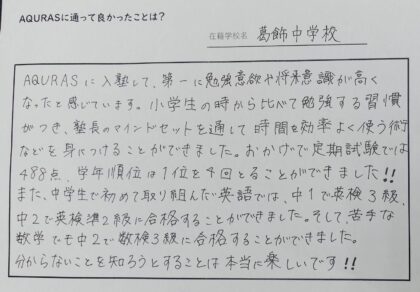 AQURASに通って良かったことは?
在籍学校名 葛飾中学校
AQURASに入塾して、第一に勉強意欲や将来意識が高く
なったと感じています。小学生の時から比べて勉強する習慣
がつき、塾長のマインドセットを通して時間を効率よく使う術
などを身につけることができました。おかげで定期試験では
488点、学年順位は1位を4回とることができました!!
また、中学生で初めて取り組んだ英語では、中1で英検3級、
中2で英検準2級に合格することができました。そして、苦手な
数学でも中2で数検3級に合格することができました。
分からないことを知ろうとすることは本当に楽しいです!!